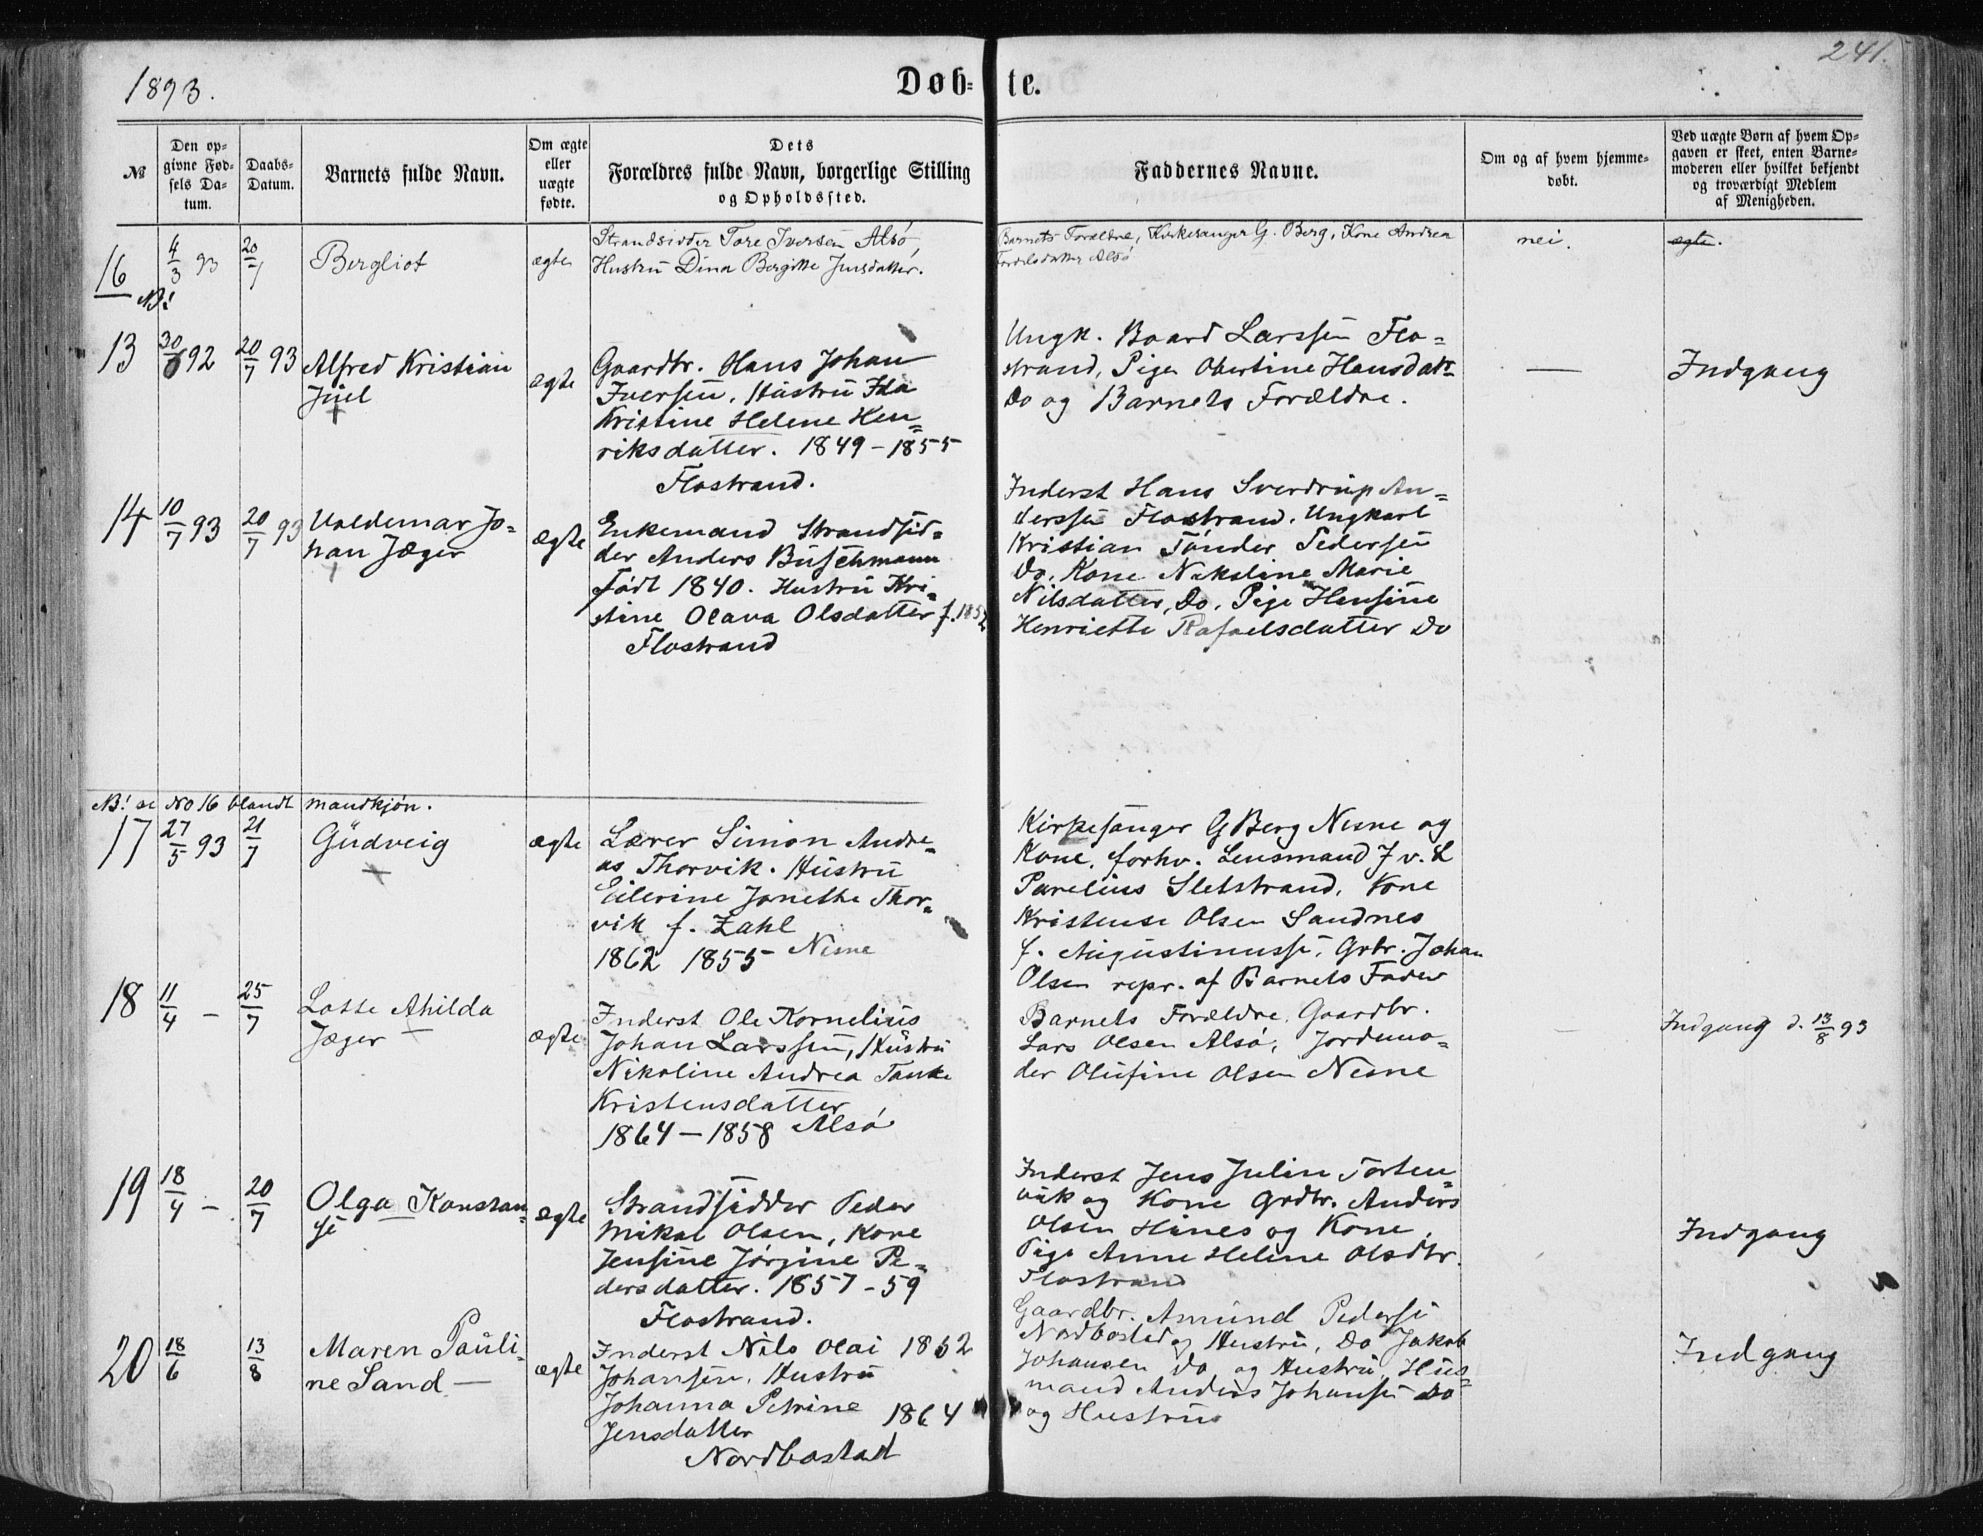 241.
1893.
Døb-te.
№
Den op-
givne Fød-
sels Da-
tum.
Daabs-
Datum.
Barnets fulde Navn.
Om ægte
eller
uægte
fødte.
Dets
Forældres fulde Navn, borgerlige Stilling
og Opholdssted.
Faddernes Navne.
Om og af hvem hjemme-
døbt.
Ved uægte Børn af hvem Op-
gaven er skeet, enten Barne-
moderen eller hvilket bekjendt
og troværdigt Medlem
af Menigheden.
16
4/3 93
20/7
Bergliot
ægte
Strandsidder Tore Iversen Alsø,
Hustru Dina Bergitte Jensdatter.
Barnets Forældre, Kirkesanger G. Berg, Kone Andrea
Alsø
nei.
ægte.
NB!
13
30/6 92
20/7 93
Alfred Kristian
Juel
ægte
Gaardbr. Hans Johan
Iversen, Hustru Ida
Kristine Helene Hen=
riksdatter. 1849 - 1855
Flostrand.
Ungk. Baard Larssen Flo=
strand, Pige Obertine Hansdatt
Do og Barnets Forældre.
—
Indgang
14
10/7 93
20/7 93
Valdemar Jo-
han Jæger
ægte
Enkemand Strandsid=
der Anders Buschmann
Født 1840. Hustru Kri=
stine Olava Olsdatter f. 1852
Flostrand
Inderst Hans Sverdrup An=
derssen Flostrand. Ungkarl
Kristian Tønder Pedersen
Do. Kone Nikoline Marie
Nilsdatter, Do. Pige Hensine
Henriette Rafaelsdatter Do
NB! se No 16 blandt mandkjøn.
17
27/5 93
21/7
Gudveig
ægte
Lærer Simon Andre=
as Thorvik. Hustru
Eilerine Jonetha Thor=
vik f. Zahl
1862 1855 Nesne
Kirkesanger G Berg Nesne og
Kone, forhv. Lensmand J v. L
Parelius Sletstrand, Kone
Kristense Olsen Sandnes
f. Augustinusse, Grbr. Johan
Olsen repr. af Barnets Fader
18
11/4 -
25/7
Lotte Ahilda
Jæger
ægte
Inderst Ole Kornelius
Johan Larssen, Hustru
Nikoline Andrea Tanke
Kristensdatter
1864 - 1858 Alsø
Barnets Forældre. Gaardbr.
Lars Olsen Alsø, Jordmo=
der Olufine Olsen Nesne
—
Indgang d. 13/8 93
19
18/4 -
20/7
Olga Konstan=
se
ægte
Strandsidder Peder
Mikal Olsen, Kone
Jensine Jørgine Pe=
dersdatter. 1857 - 59
Flostrand.
Inderst Jens Julin Torten=
vik og Kone Grdbr. Anders
Olsen Hines og Kone,
Pige Anne Helene Olsdtr.
Flostrand
Indgang
20
18/6
13/8
Maren Pauli-
ne Sand
ægte
Inderst Nils Olai 1862
Johansen, Hustru
Johanna Petrine 1864
Jensdatter
Nordbostad
Gaardbr. Amund Pederse
Nordbostad og Hustru, Do Jakob
Johansen Do og Hustru, Hus=
mand Anders Johansen Do
og Hustru
Indgang